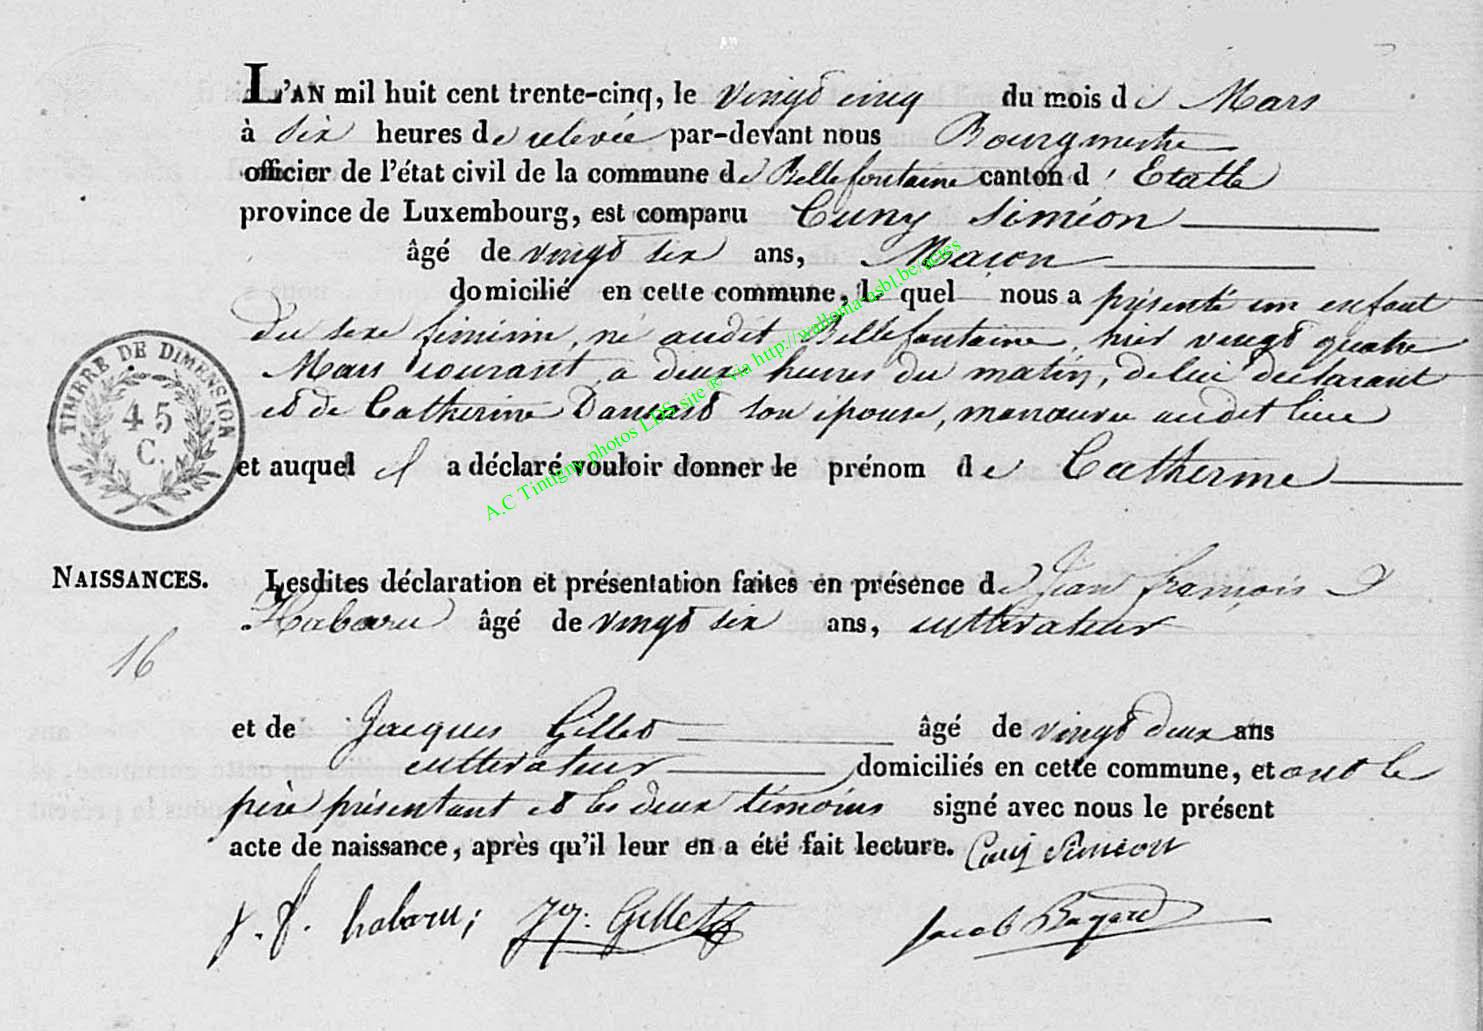 L'AN mil huit cent trente-cinq, le vingt cinq du mois de Mars
à six heures de relevée par-devant nous Bourgmestre
officier de l'état civil de la commune de Bellefontaine canton d'Etalle
province de Luxembourg, est comparu Cuny Siméon
âgé de vingt six ans, Maçon
domicilié en cette commune, le quel nous a présenté un enfant
du sexe féminin, né audit Bellefontaine, hier vingt quatre
Mars courant, a deux heures du matin, de lui declarant
et de Catherine Dansard son épouse, manœuvre audit lieu
et auquel il a déclaré vouloir donner le prénom de Catherine
TIMBRE DE DIMENSION
45
C.
NAISSANCES.
16
Lesdites déclaration et présentation faites en présence de Jean françois
Habaru âgé de vingt six ans, cultivateur
et de Jacques Gillet âgé de vingt deux ans
cultivateur domiciliés en cette commune, et ont le
père présentant et les deux témoins signé avec nous le présent
acte de naissance, après qu'il leur en a été fait lecture. Cuny Simeon
j. f. habaru; Jq. Gillet Jacob Bagard
A.C Tintigny photos LDS site ® via http://wallonia-asbl.be/actes